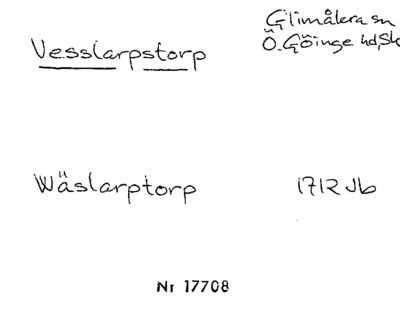 Glimåkra sn
Vesslarpstorp Ö. Göinge hd, Sk
Wäslarptorp 1712 Jb
Nr 17708